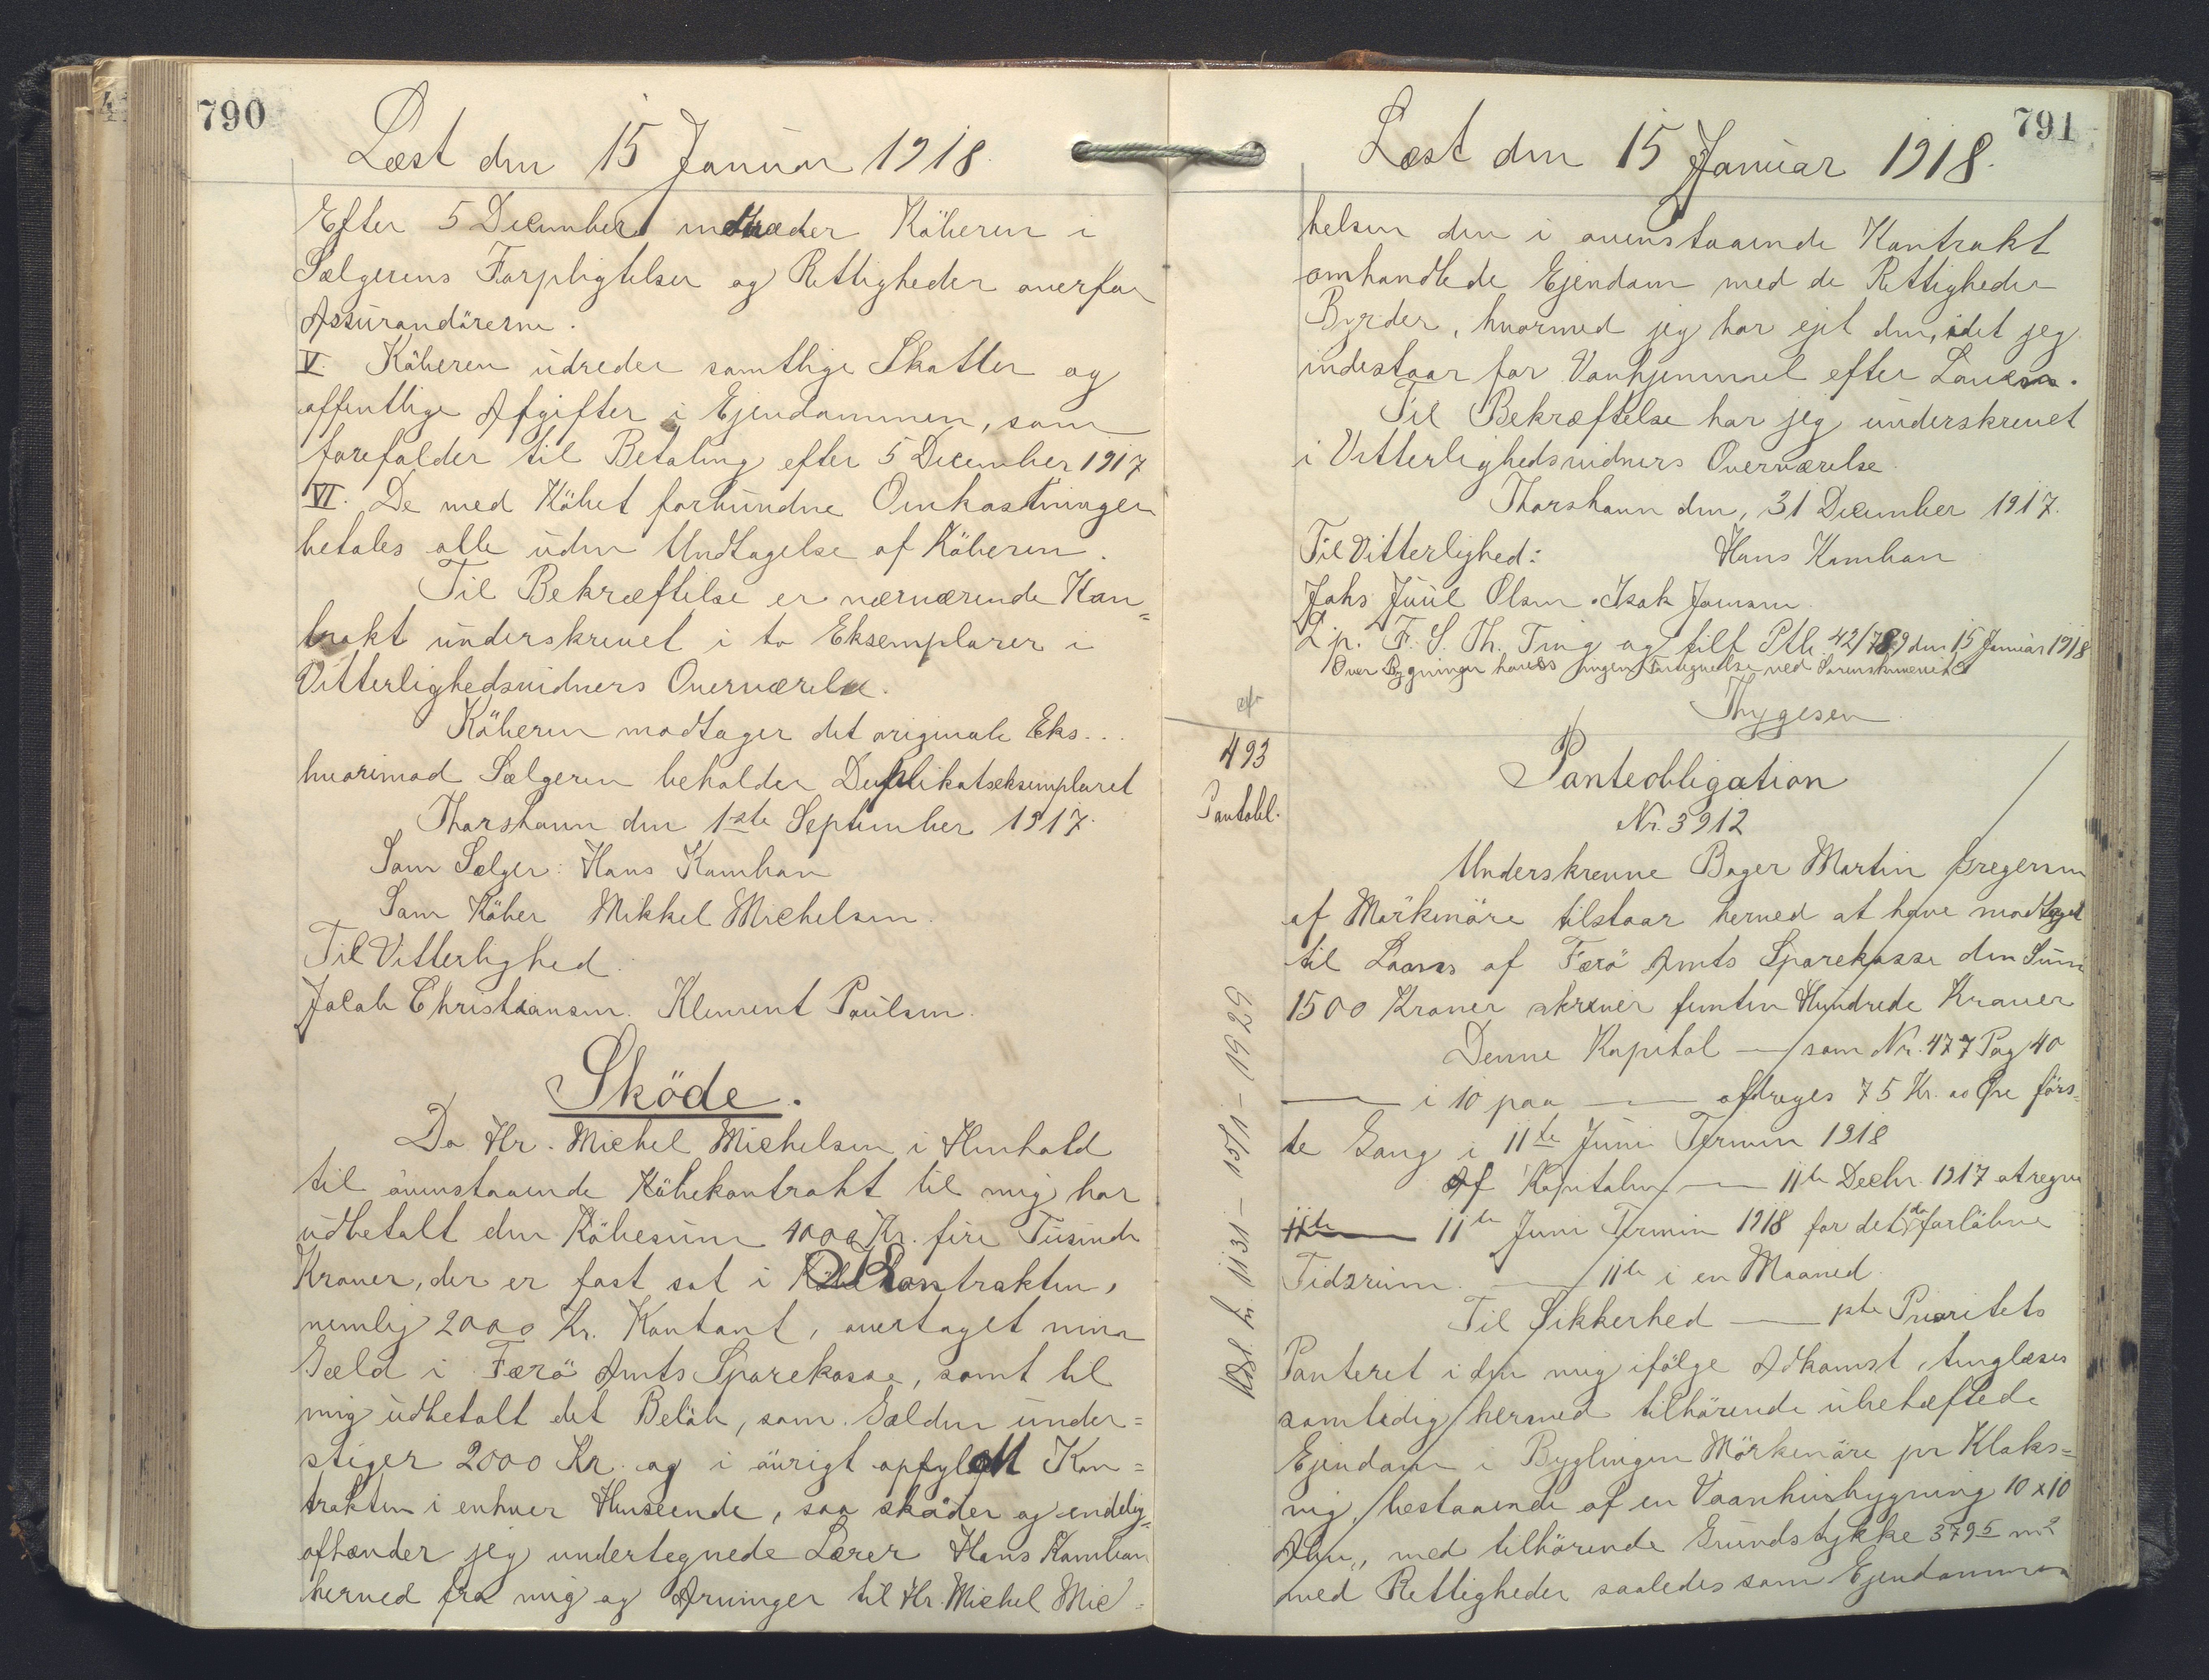 790
Læst den 15 Januar 1918.
Efter 5 December indtræder Köberen i
Sælgerens Forpligtelser og Rettigheder overfor
Assurandörerne.
V. Köberen udreder samtlige Skatter og
offentlige Afgifter i Ejendommen, som
forefalder til Betaling efter 5 December 1917
VI. De med Köbet forbundne Omkostninger
betales alle uden Undtagelse af Köberen.
Til Bekræftelse er nærværende Kon=
trakt underskrevet i to Eksemplarer i
Vitterlighedsvidners Overværelse.
Köberen modtager det originale Eks...
hvorimod Sælgeren beholder Duplikateksemplaret
Thorshavn den 1ste September 1917.
Som Sælger: Hans Kamban
Som Köber Mikkel Michelsen.
Til Vitterlighed.
Jacob Christiansen. Klement Poulsen.
Sköde.
Da Hr. Michel Michelsen i Henhold
til ovenstaaende Köbekontrakt til mig har
udbetalt den Köbesum 4000 Kr. fire Tusinde
Kroner, der er fast sat i Köbekontrakten,
nemlig 2000 Kr. Kontant, overtaget min
Gæld i Færö Amts Sparekasse, samt til
mig udbetalt det Belöb, som Gælden under=
stiger 2000 Kr. og i övrigt opfyldt Kon=
trakten i enhver Henseende, saa sköder og endelig=
afhænder jeg undertegnede Lærer Hans Kamban
herved fra mig og Arvinger til Hr. Michel Mic=
791
Læst den 15 Januar 1918.
helsen den i ovenstaaende Kontrakt
omhandlede Ejendom med de Rettigheder
Byrder, hvormed jeg har ejet den, idet jeg
indestaar for Vanhjemmel efter Loven.
Til Bekræftelse har jeg underskrevet
i Vitterlighedsvidners Overværelse
Thorshavn den, 31 December 1917.
Til Vitterlighed: Hans Kamban
Johs Juul Olsen. Isak Joensen.
L. p. F. S. Th. Ting og tilf Ptb. 42/789 den 15 Januar 1918
Over Bygningen haves ingen Tartegnelse ved Sorenskriveriet
Thygesen
493
Pantobl.
Panteobligation
Nr. 3912
Underskrevne Bager Martin Gregersen
af Mörkenöre tilstaar herved at have modtaget
til Laans af Færö Amts Sparekasse den Sum
1500 Kroner skriver femten Hundrede Kroner
Denne Kapital — som Nr. 477 Pag 40
— i 10 paa — afdrages 75 Kr. oo Öre förs=
te Gang i 11te Juni Termin 1918
Af Kapitalen — 11te Decbr. 1917 at regne
11te — 11te Juni Termin 1918 for det da forlöbne
Tidsrum. — 11te i en Maaned.
Til Sikkerhed — pte Prioritets
Panteret i den mig ifölge Adkomst, tinglæses
samtidig hermed tilhörende ubehæftede
Ejendom i Byglingen Mörkenöre pr Klaks=
vig, bestaaende af en Vaanhusbygning 10 x 10
Alen, med tilhörende Grundstykke 3795 m2
med Rettigheder saaledes som Ejendommen
1131 — 15/1 — 1929